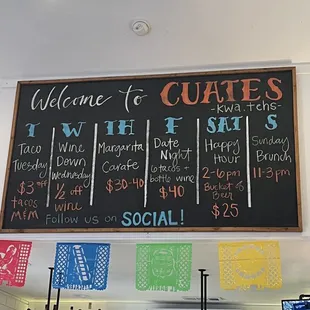 Welcome to CUATES
-kwa.tehs-
T W TH F SAT S
Taco
Tuesday
$3 off
tacos
M&M
Wine
Down
Wednesday
1/2 off
wine
Margarita
Carafe
$30-40
Date
Night
6 tacos +
bottle wine
$40
Happy
Hour
2-6pm
Bucket of
Beer
$25
Sunday
Brunch
11-3pm
Follow us on SOCIAL!